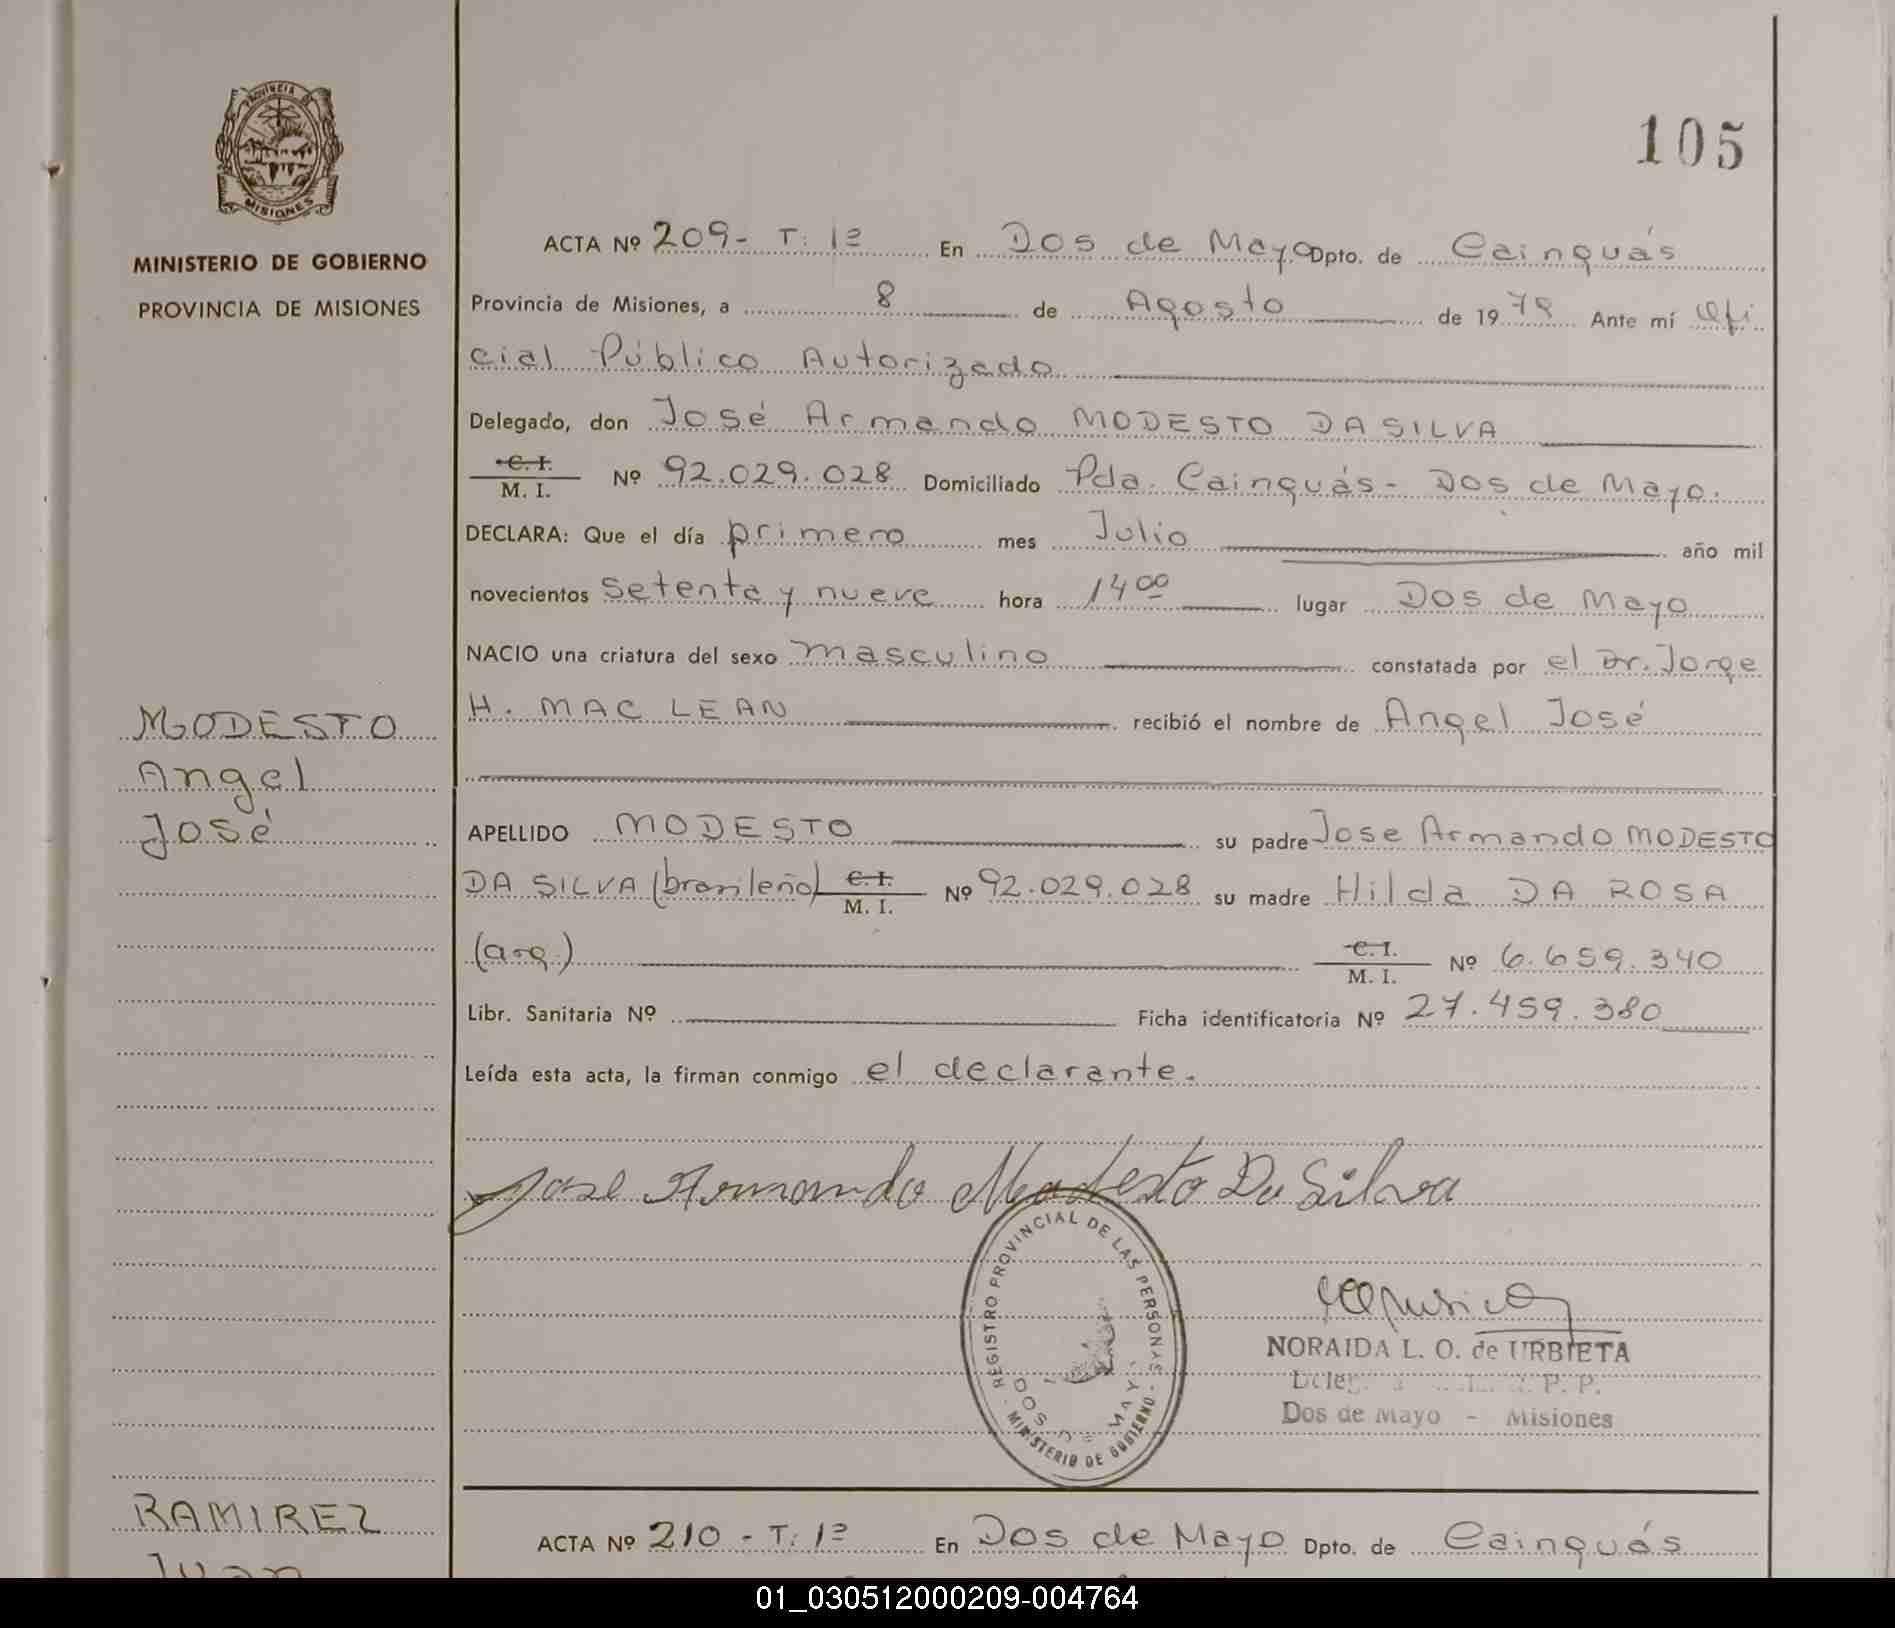 PROVINCIA DE
MISIONES
MINISTERIO DE GOBIERNO
PROVINCIA DE MISIONES
105
ACTA Nº 209- T: 1º En Dos de Mayo Dpto. de Cainguás
Provincia de Misiones, a 8 de Agosto de 1979 Ante mí Ofi
cial Público Autorizado
Delegado, don José Armando MODESTO DA SILVA
C. I.
M. I. Nº 92.029.028 Domiciliado Pda. Cainguás- Dos de Mayo.
DECLARA: Que el día primero mes Julio año mil
novecientos setenta y nueve hora 14 00 lugar Dos de Mayo
NACIO una criatura del sexo masculino constatada por el Dr. Jorge
H. MAC LEAN recibió el nombre de Angel José
MODESTO
Angel
José
APELLIDO MODESTO su padre Jose Armando MODESTO
DA SILVA (brasileño) C. I.
M. I. Nº 92.029.028 su madre Hilda DA ROSA
(arg.) C. I.
M. I. Nº 6.659.340
Libr. Sanitaria Nº Ficha identificatoria Nº 27.459.380
Leída esta acta, la firman conmigo el declarante.
Jose Armando Modesto Da Silva
REGISTRO PROVINCIAL DE LAS PERSONAS
DOS DE MAYO
MINISTERIO DE GOBIERNO
NORAIDA L. O. de URBIETA
P. P.
Dos de Mayo - Misiones
RAMIREZ
Juan
ACTA Nº 210 - T: 1º En Dos de Mayo Dpto. de Cainguás
01_030512000209-004764